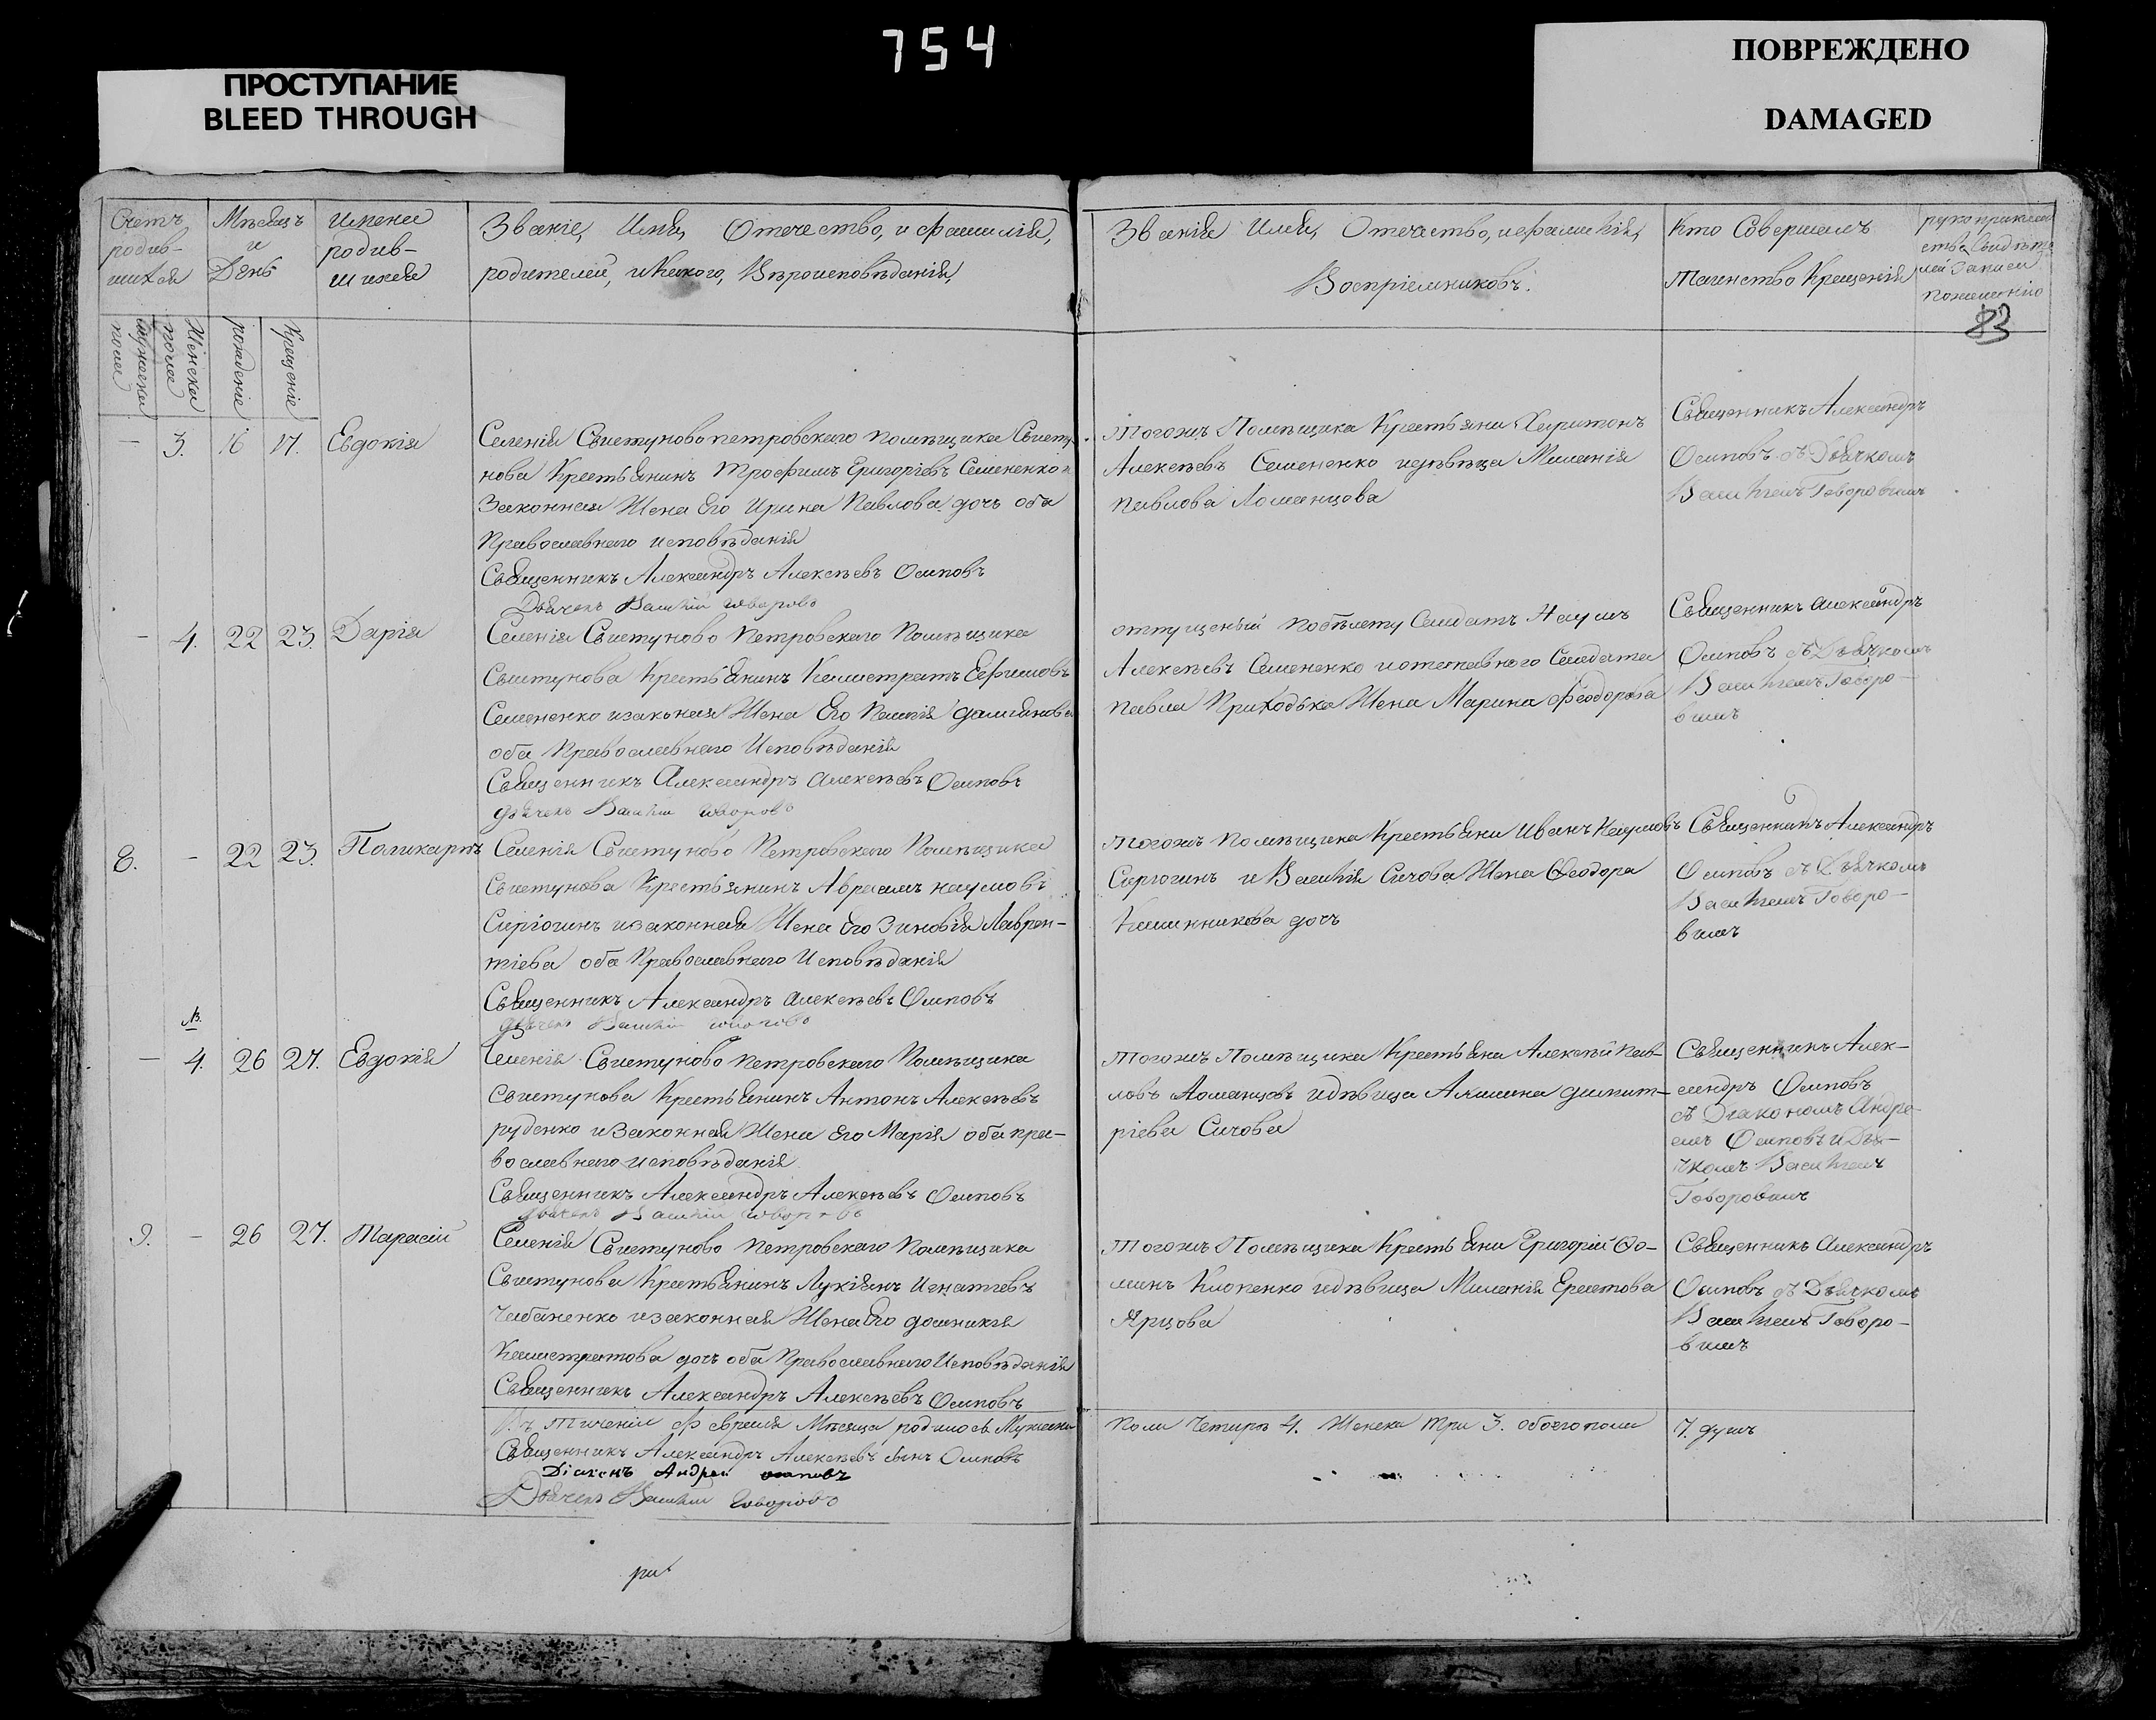 754
ПРОСТУПАНИЕ
BLEED THROUGH
ПОВРЕЖДЕНО
DAMAGED
Счетъ родив-шихся
Мѣсяцъ и День
Имена родив-шихся
Званіе, Имя, Отечество, и фамилія,
родителей, и Какого, Вѣроисповѣданія,
Званія Имя, Отечество, и фамилія,
Воспріемниковъ.
Кто Совершалъ
Таинство Крещенія
83
мужеска пола
Женска пола
рожденіе
Крещеніе
— 3. 16 17. Евдокія
Селенія Свистуново петровскаго помѣщика Свисту
нова Крестьянинъ Трофимъ Григоріевъ Семененко и
Законная Жена Его Ирина Павлова дочь оба
Православнаго исповѣданія
Священникъ Александръ Алексѣевъ Осиповъ
Дьячекъ Василій Говоровъ
Тогожъ Помѣщика Крестьяни Харитонъ
Алексѣевъ Семененко и дѣвица Миланія
Павлова Ломанцова
Священникъ Александръ
Осиповъ съ Дьячкомъ
Василіемъ Говоровимъ
— 4. 22 23. Дарія
Селенія Свистуново Петровскаго Помѣщика
Свистунова Крестьянинъ Калистратъ Ефимовъ
Семененко и законная Жена Его Пелагія
оба Православнаго Исповѣданія
Священникъ Александръ Алексѣевъ Осиповъ
Дьячекъ Василій Говоровъ
отпущеный побѣлету Салдатъ Наумъ
Алексѣевъ Семененко и отставного Салдата
Павла Приходька Жена Марина Феодорова
Священникъ Александръ
Осиповъ съ Дьячкомъ
Василіемъ Говоро-
вимъ
8. — 22 23. Поликарпъ
Селенія Свистуново Петровскаго Помѣщика
Свистунова Крестьянинъ Авраамъ Наумовъ
Сиріогинъ и законная Жена Его Зиновія Лаврен-
тіева оба Православнаго Исповѣданія
Священникъ Александръ Алексѣевъ Осиповъ
Дьячекъ Василій Говоровъ
Тогожъ помѣщика Крестьяни Иванъ Наумовъ
и Василія Сичова Жена Феодора
дочь
Священникъ Александръ
Осиповъ съ Дьячкомъ
Василіемъ Говоро-
вимъ
— 4. 26 27. Евдокія
Селенія Свистуново петровскаго Помѣщика
Свистунова Крестьянинъ Антонъ Алексѣевъ
руденко и Законная Жена Его Марія оба пра-
вославнаго исповѣданія
Священникъ Александръ Алексѣевъ Осиповъ
Дьячекъ Василій Говоровъ
Тогожъ Помѣщика Крестьяни Алексѣй Пав-
ловъ Ломанцовъ и дѣвица Акилина димит-
ріева Сичова
Священникъ Алек-
сандръ Осиповъ
съ Діакономъ Андре-
емъ Осиповъ и Дья-
чкомъ Василіемъ
Говоровимъ
9. — 26 27. Тарасій
Селенія Свистуново петровскаго Помѣщика
Свистунова Крестьянинъ Лукіянъ Игнатіевъ
Чабаненко и законная Жена Его домникія
Калистратова дочь оба Православнаго Исповѣданія
Священникъ Александръ Алексѣевъ Осиповъ
Тогожъ Помѣщика Крестьяни Григорій Фо-
минъ и дѣвица Миланія
Ярцова
Священникъ Александръ
Осиповъ съ Дьячкомъ
Василіемъ Говоро-
вимъ
Въ Теченіи Февраля Мѣсяца родилось Мужеска
пола Четыре 4. Женска три 3. обоего пола
7. душъ
Священникъ Александръ Алексѣевъ сынъ Осиповъ
Діаконъ Андрей Осиповъ
Дьячекъ Василій Говоровъ